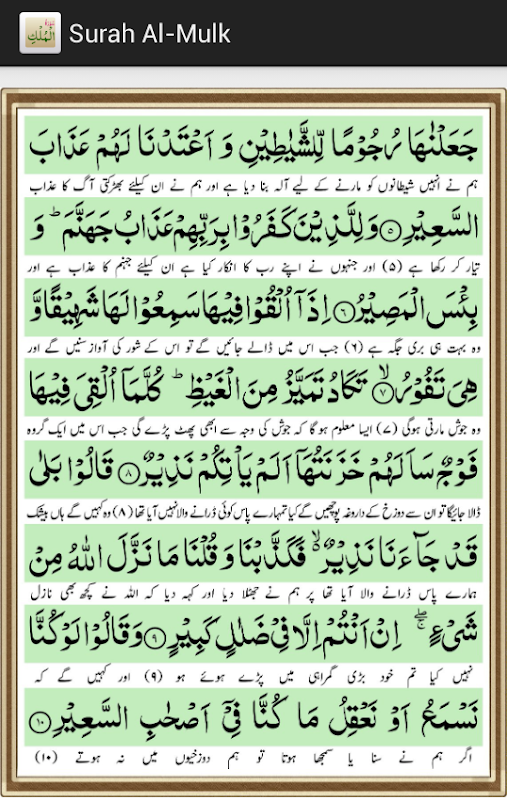 Surah Al-Mulk
جَعَلْنٰهَا رُجُوْمًا لِّلشَّيٰطِيْنِ وَ اَعْتَدْنَا لَهُمْ عَذَابَ
ہم نے انہیں شیطانوں کو مارنے کے لیے آلہ بنا دیا ہے اور ہم نے ان کیلئے بھڑکتی آگ کا عذاب
السَّعِيْرِ ۝۵ وَ لِلَّذِيْنَ كَفَرُوْا بِرَبِّهِمْ عَذَابُ جَهَنَّمَ ؕ وَ
تیار کر رکھا ہے (۵) اور جنہوں نے اپنے رب کا انکار کیا ہے ان کیلئے جہنم کا عذاب ہے اور
بِئْسَ الْمَصِيْرُ ۝۶ اِذَاۤ اُلْقُوْا فِيْهَا سَمِعُوْا لَهَا شَهِيْقًا وَّ
وہ بہت ہی بری جگہ ہے (۶) جب اس میں ڈالے جائیں گے تو اس کے شور کی آواز سنیں گے اور
هِيَ تَفُوْرُ ۙ۝۷ تَكَادُ تَمَيَّزُ مِنَ الْغَيْظِ ؕ كُلَّمَاۤ اُلْقِيَ فِيْهَا
وہ جوش مارتی ہوگی (۷) ایسا معلوم ہو گا کہ جوش کی وجہ سے ابھی پھٹ پڑے گی جب اس میں ایک گروہ
فَوْجٌ سَاَلَهُمْ خَزَنَتُهَاۤ اَلَمْ يَاْتِكُمْ نَذِيْرٌ ۝۸ قَالُوْا بَلٰى
ڈالا جائیگا تو ان سے دوزخ کے داروغہ پوچھیں گے کیا تمہارے پاس کوئی ڈرانے والا نہیں آیا تھا (۸) وہ کہیں گے ہاں بیشک
قَدْ جَآءَنَا نَذِيْرٌ ۙ۬ فَكَذَّبْنَا وَ قُلْنَا مَا نَزَّلَ اللّٰهُ مِنْ
ہمارے پاس ڈرانے والا آیا تھا پر ہم نے جھٹلا دیا اور کہہ دیا کہ اللہ نے کچھ بھی نازل
شَيْءٍ ۖۚ اِنْ اَنْتُمْ اِلَّا فِيْ ضَلٰلٍ كَبِيْرٍ ۝۹ وَ قَالُوْا لَوْ كُنَّا
نہیں کیا تم خود بڑی گمراہی میں پڑے ہوئے ہو (۹) اور کہیں گے کہ
نَسْمَعُ اَوْ نَعْقِلُ مَا كُنَّا فِيْۤ اَصْحٰبِ السَّعِيْرِ ۝۱۰
اگر ہم نے سنا یا سمجھا ہوتا تو ہم دوزخیوں میں نہ ہوتے (۱۰)